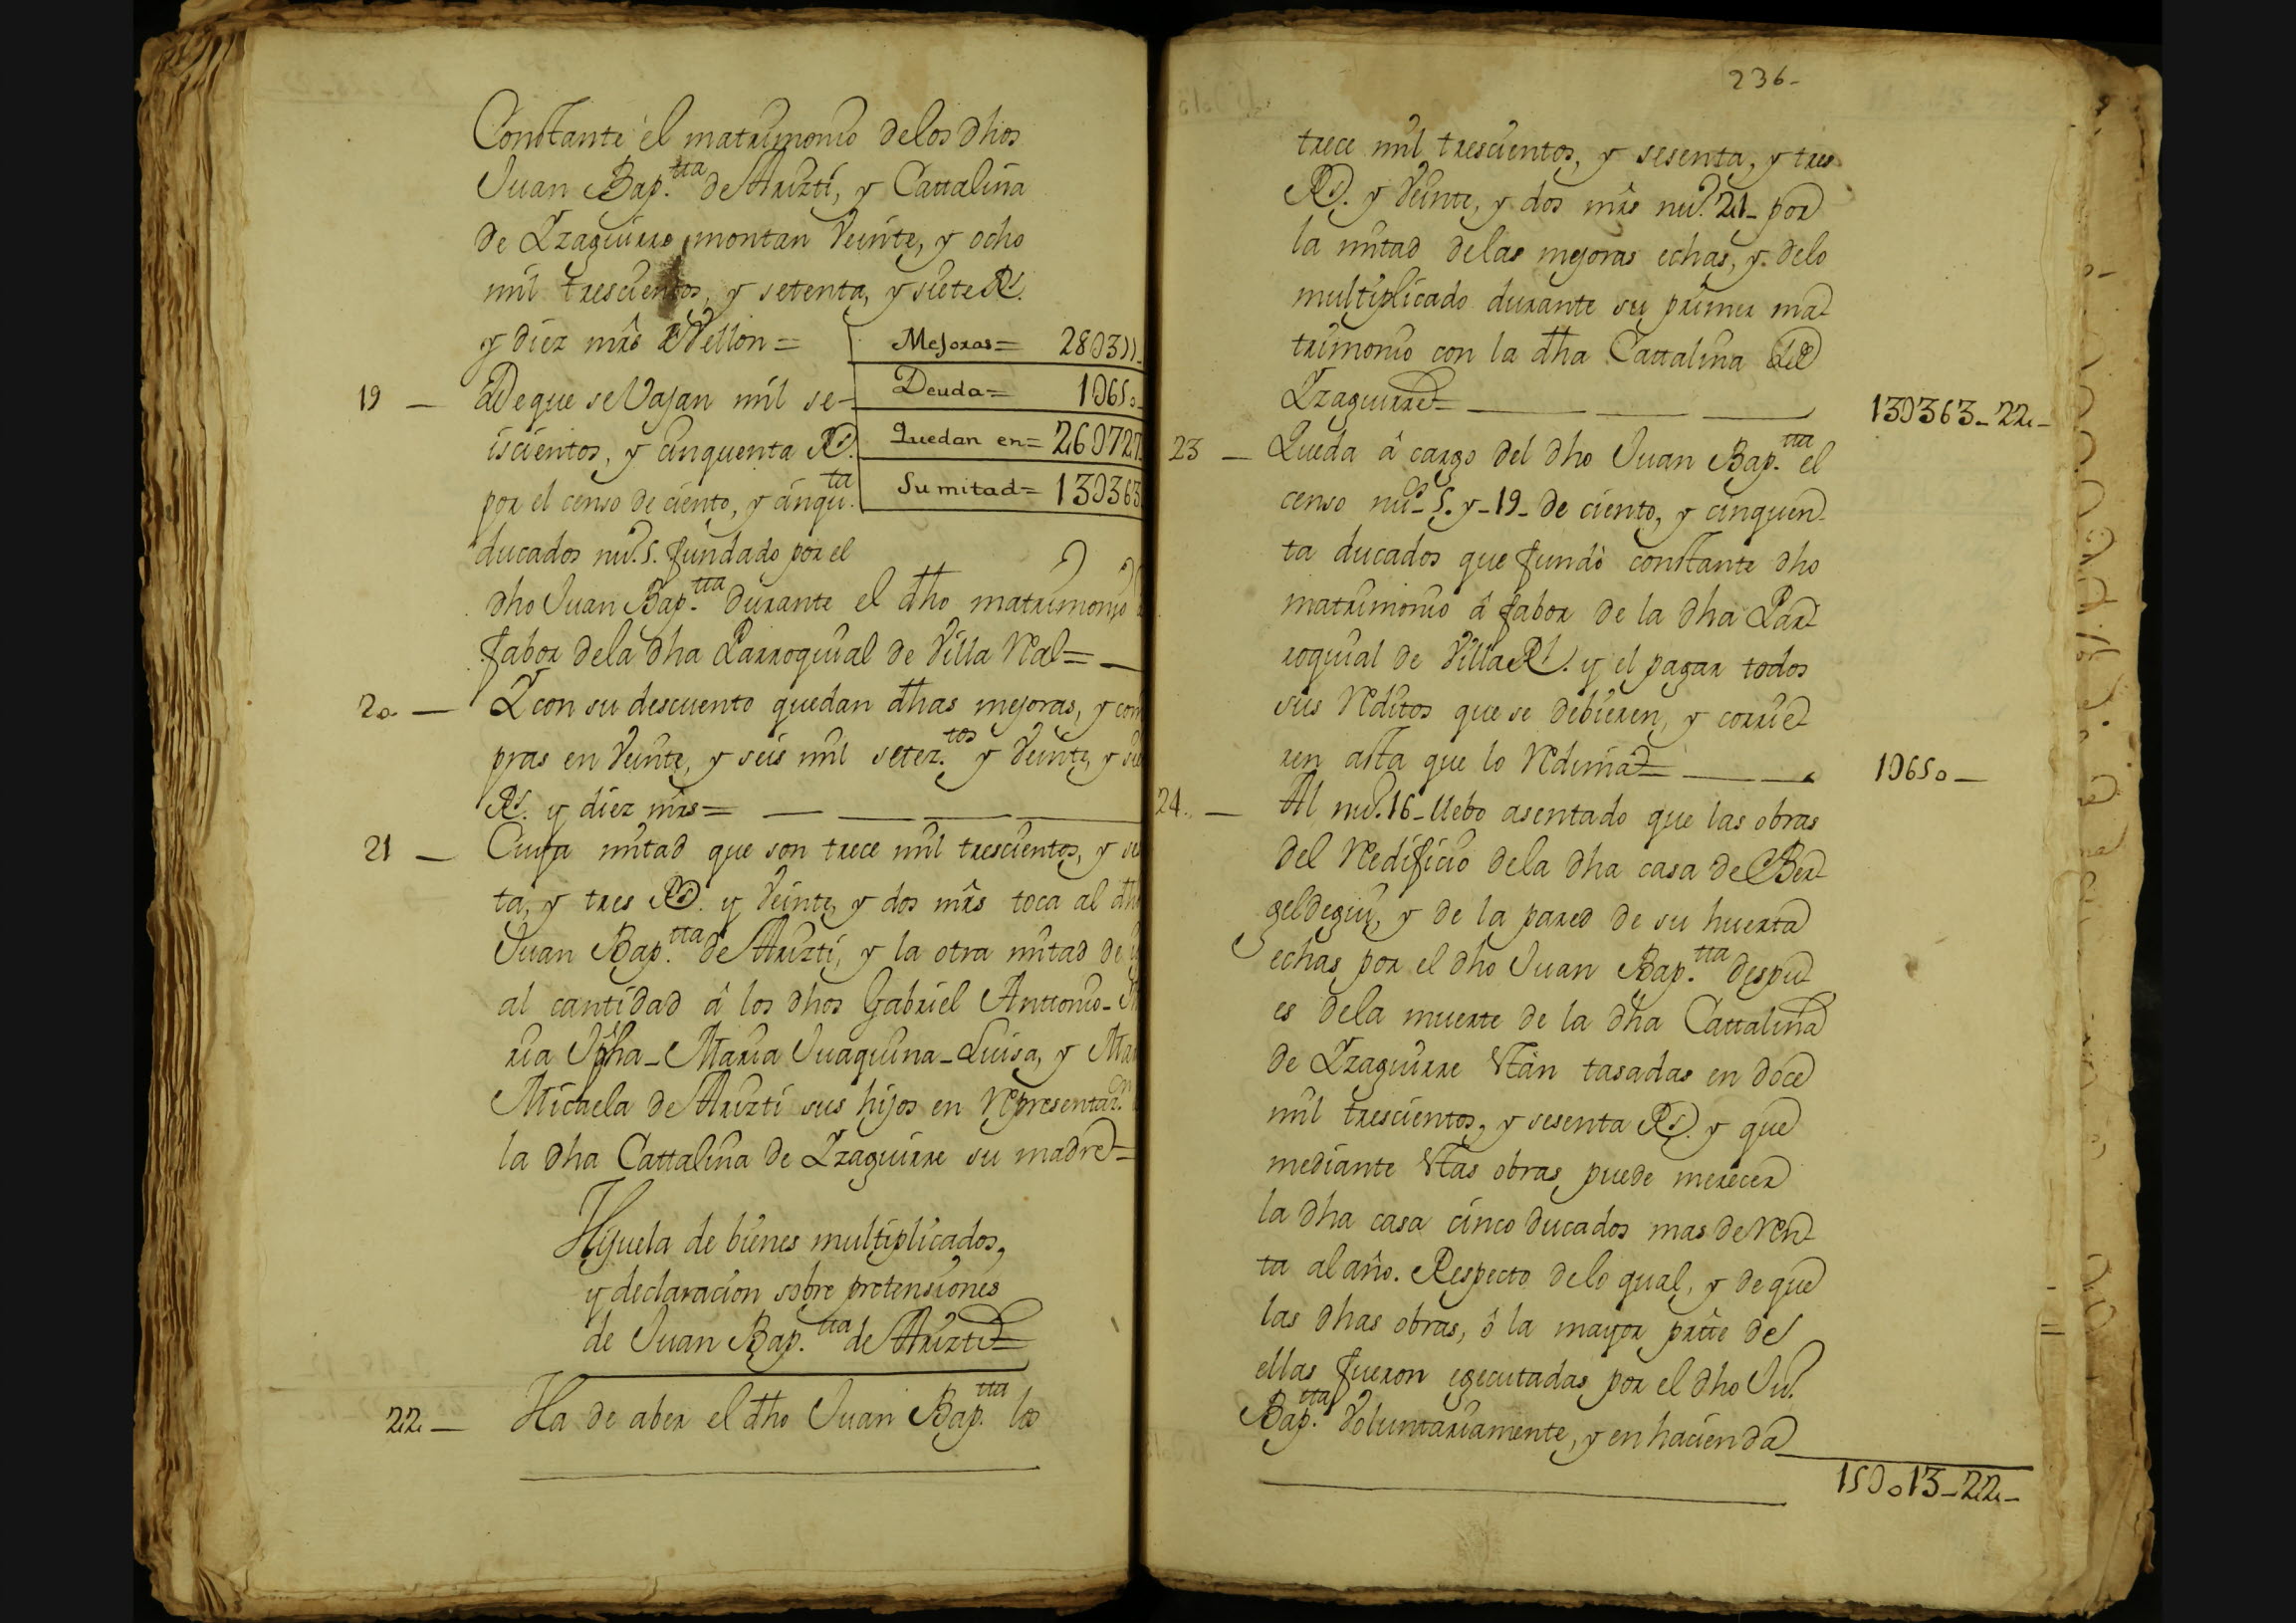 Constante el matrimonio delos dhos
Juan Bap.tta de Aruzti, y Cattalina
de Yzaguirre montan Veinte, y ocho
mil trescientos, y setenta, y siete Rs.
y diez mrs Vellon=
Mejoras= 28D3
19 — De que se Vajan mil se-
Deuda= 1D650
iscientos, y cinquenta Rs.
Quedan en= 26D727
por el censo de ciento, y cinqu.ta
Su mitad= 13D363
ducados nu.5. fundado por el
dho Juan Bap.tta durante el dho matrimonio
fabor dela dha Parroquial de Villa Ral=
20 — Y con su descuento quedan dhas mejoras, y com
pras en Veinte, y seis mil setez.tos y Veinte, y
Rs. y diez mrs=
21 — Cuya mitad que son trece mil trescientos, y se
ta, y tres Rs. y Veinte, y dos mrs toca al dho
Juan Bap.tta de Aruzti, y la otra mitad de
al cantidad â los dhos Gabriel Anttonio-
ria Jpha-Maria Juaquina-Luisa, y Mar
Micaela de Aruzti sus hijos en Representaz.on
la dha Cattalina de Yzaguirre su madre=
Hijuela de bienes multiplicados,
y declaracion sobre pretensiones
de Juan Bap.tta de Aruzti=
22 — Ha de aber el dho Juan Bap.tta los
236-
trece mil trescientos, y sesenta, y tres
Rs. y Veinte, y dos mrs nu.21- por
la mitad delas mejoras echas, y delo
multiplicado durante su primer ma-
trimonio con la dha Cattalina de
Yzaguirre= 13D363-22-
23 — Queda â cargo del dho Juan Bap.tta el
censo nu.os 5. y-19- de ciento, y cinquen-
ta ducados que fundò constante dho
matrimonio â fabor de la dha Par-
roquial de Villa Rl. y el pagar todos
sus Reditos que se debieren, y corrie-
ren asta que lo Redima= 1D650-
24. — Al nu.16-llebo asentado que las obras
del Redificio dela dha casa de Ber-
geldegui, y de la pared de su huerta
echas por el dho Juan Bap.tta despu-
es dela muerte de la dha Cattalina
de Yzaguirre Estàn tasadas en doce
mil trescientos, y sesenta Rs. y que
mediante Estas obras puede merecer
la dha casa cinco ducados mas de Ren-
ta al año. Respecto delo qual, y de que
las dhas obras, ô la mayor partte de
ellas fueron egecutadas por el dho Ju.
Bap.tta Voluntariamente, y en hacienda
15D013-22-